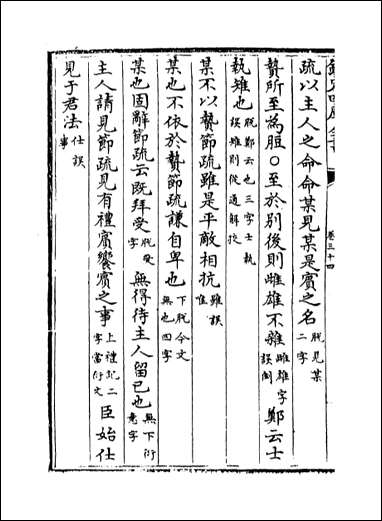 欽定四庫全書
卷三十四
疏以主人之命命某見某是賓之名脫見某二字
贄所至為脰○至於別後則雌雄不雜雌雄字誤闕鄭云士
執雉也脫鄭云也三字士執誤雉則從通解挍
某不以贄節疏雖是平敵相抗雖誤惟
某也不依於贄節疏謙自卑也下脫今文無也四字
某也固辭節疏云既拜受脫字無得待主人留已也無下衍意字
主人請見節疏見有禮賓饗賓之事上禮記二字當衍文臣始仕
見于君法仕誤事